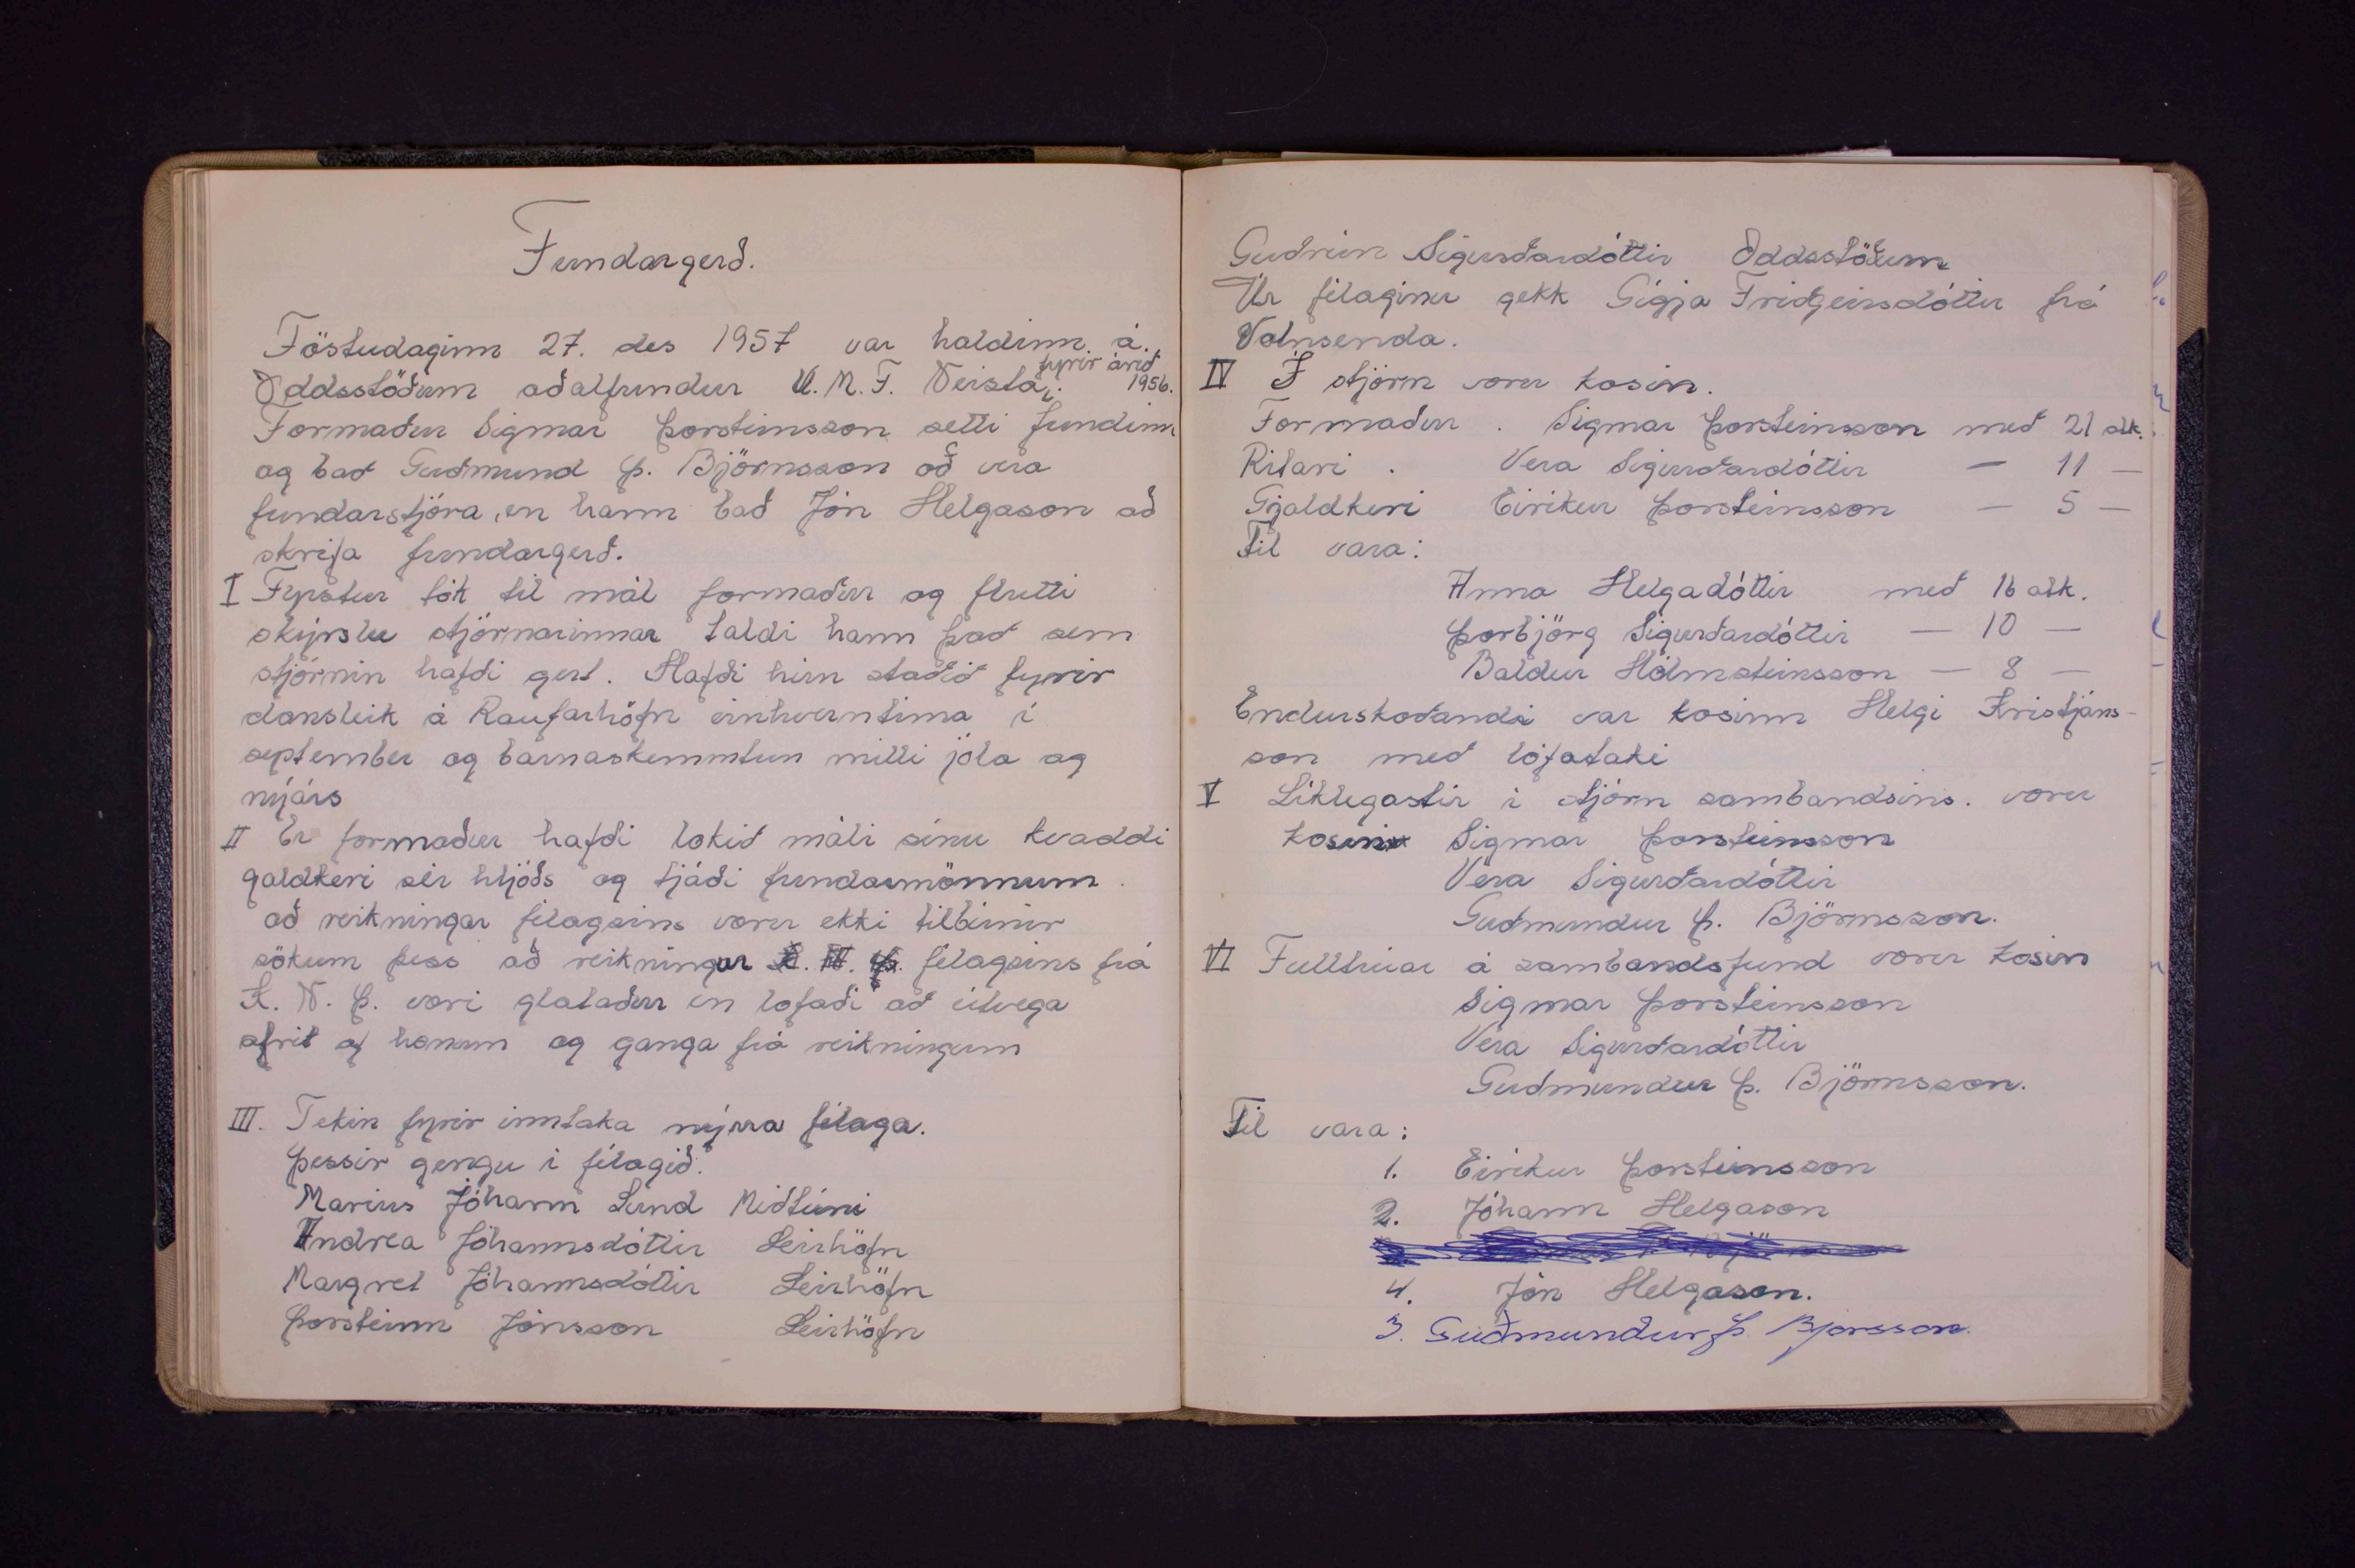 Fundargerð.
Föstudaginn 27. des 1957 var haldinn á
Oddsstöðum aðalfundur U.M.F. Neista, fyrir árið 1956.
Formaður Sigmar Þorsteinsson setti fundinn
og bað Guðmund Þ. Björnsson að vera
fundarstjóra, en hann bað Jón Helgason að
skrifa fundargerð.
I Fyrstur tók til mál formaður og flutti
skýrslu stjórnarinnar taldi hann það sem
stjórnin hafði gert. Hafði hún staðið fyrir
dansleik á Raufarhöfn einhverntíma í
september og barnaskemmtun milli jóla og
nýjárs
II Er formaður hafði lokið máli sínu kvaddi
galdkeri sér hljóðs og tjáði fundarmönnum.
að reikningar félagsins voru ekki tilbúnir
sökum þess að reikningur K. N. Þ. félagsins frá
K. N. Þ. væri glataður en lofaði að útvega
afrit af honum og ganga frá reikningum
III. Tekin fyrir inntaka nýrra félaga.
Þessir gengu í félagið.
Marius Jóhann Lund Miðtúni
Andrea Jóhannsdóttir Leirhöfn
Margret Jóhannsdóttir Leirhöfn
Þorsteinn Jónsson Leirhöfn
Guðrún Sigurðardóttir Oddsstöðum
Úr félaginu gekk Gígja Friðgeirsdóttir frá
Vatnsenda.
IV Í stjórn voru kosin.
Formaður. Sigmar Þorsteinsson með 21 atk.
Ritari. Vera Sigurðardóttir — 11 —
Gjaldkeri Eiríkur Þorsteinsson — 5 —
Til vara:
Anna Helgadóttir með 16 atk.
Þorbjörg Sigurðardóttir — 10 —
Baldur Hólmsteinsson — 8 —
Endurskoðandi var kosinn Helgi Kristjáns-
son með lófataki
V Líklegastir í stjórn sambandsins. voru
kosin Sigmar Þorsteinsson
Vera Sigurðardóttir
Guðmundur Þ. Björnsson.
VI Fulltrúar á sambandsfund voru kosin
Sigmar Þorsteinsson
Vera Sigurðardóttir
Guðmundur Þ. Björnsson.
Til vara:
1. Eiríkur Þorsteinsson
2. Jóhann Helgason
4. Jón Helgason.
3. Guðmundur Þ. Bjorsson.